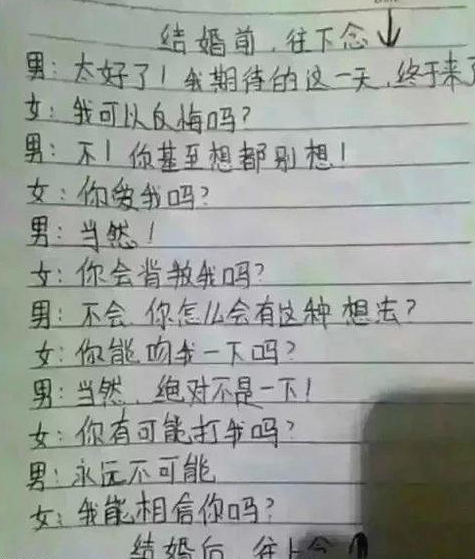 结婚前，往下念↓
男：太好了！我期待的这一天，终于来了
女：我可以反悔吗？
男：不！你甚至想都别想！
女：你爱我吗？
男：当然！
女：你会背叛我吗？
男：不会，你怎么会有这种想法？
女：你能吻我一下吗？
男：当然，绝对不是一下！
女：你有可能打我吗？
男：永远不可能
女：我能相信你吗？
结婚后，往上念↑